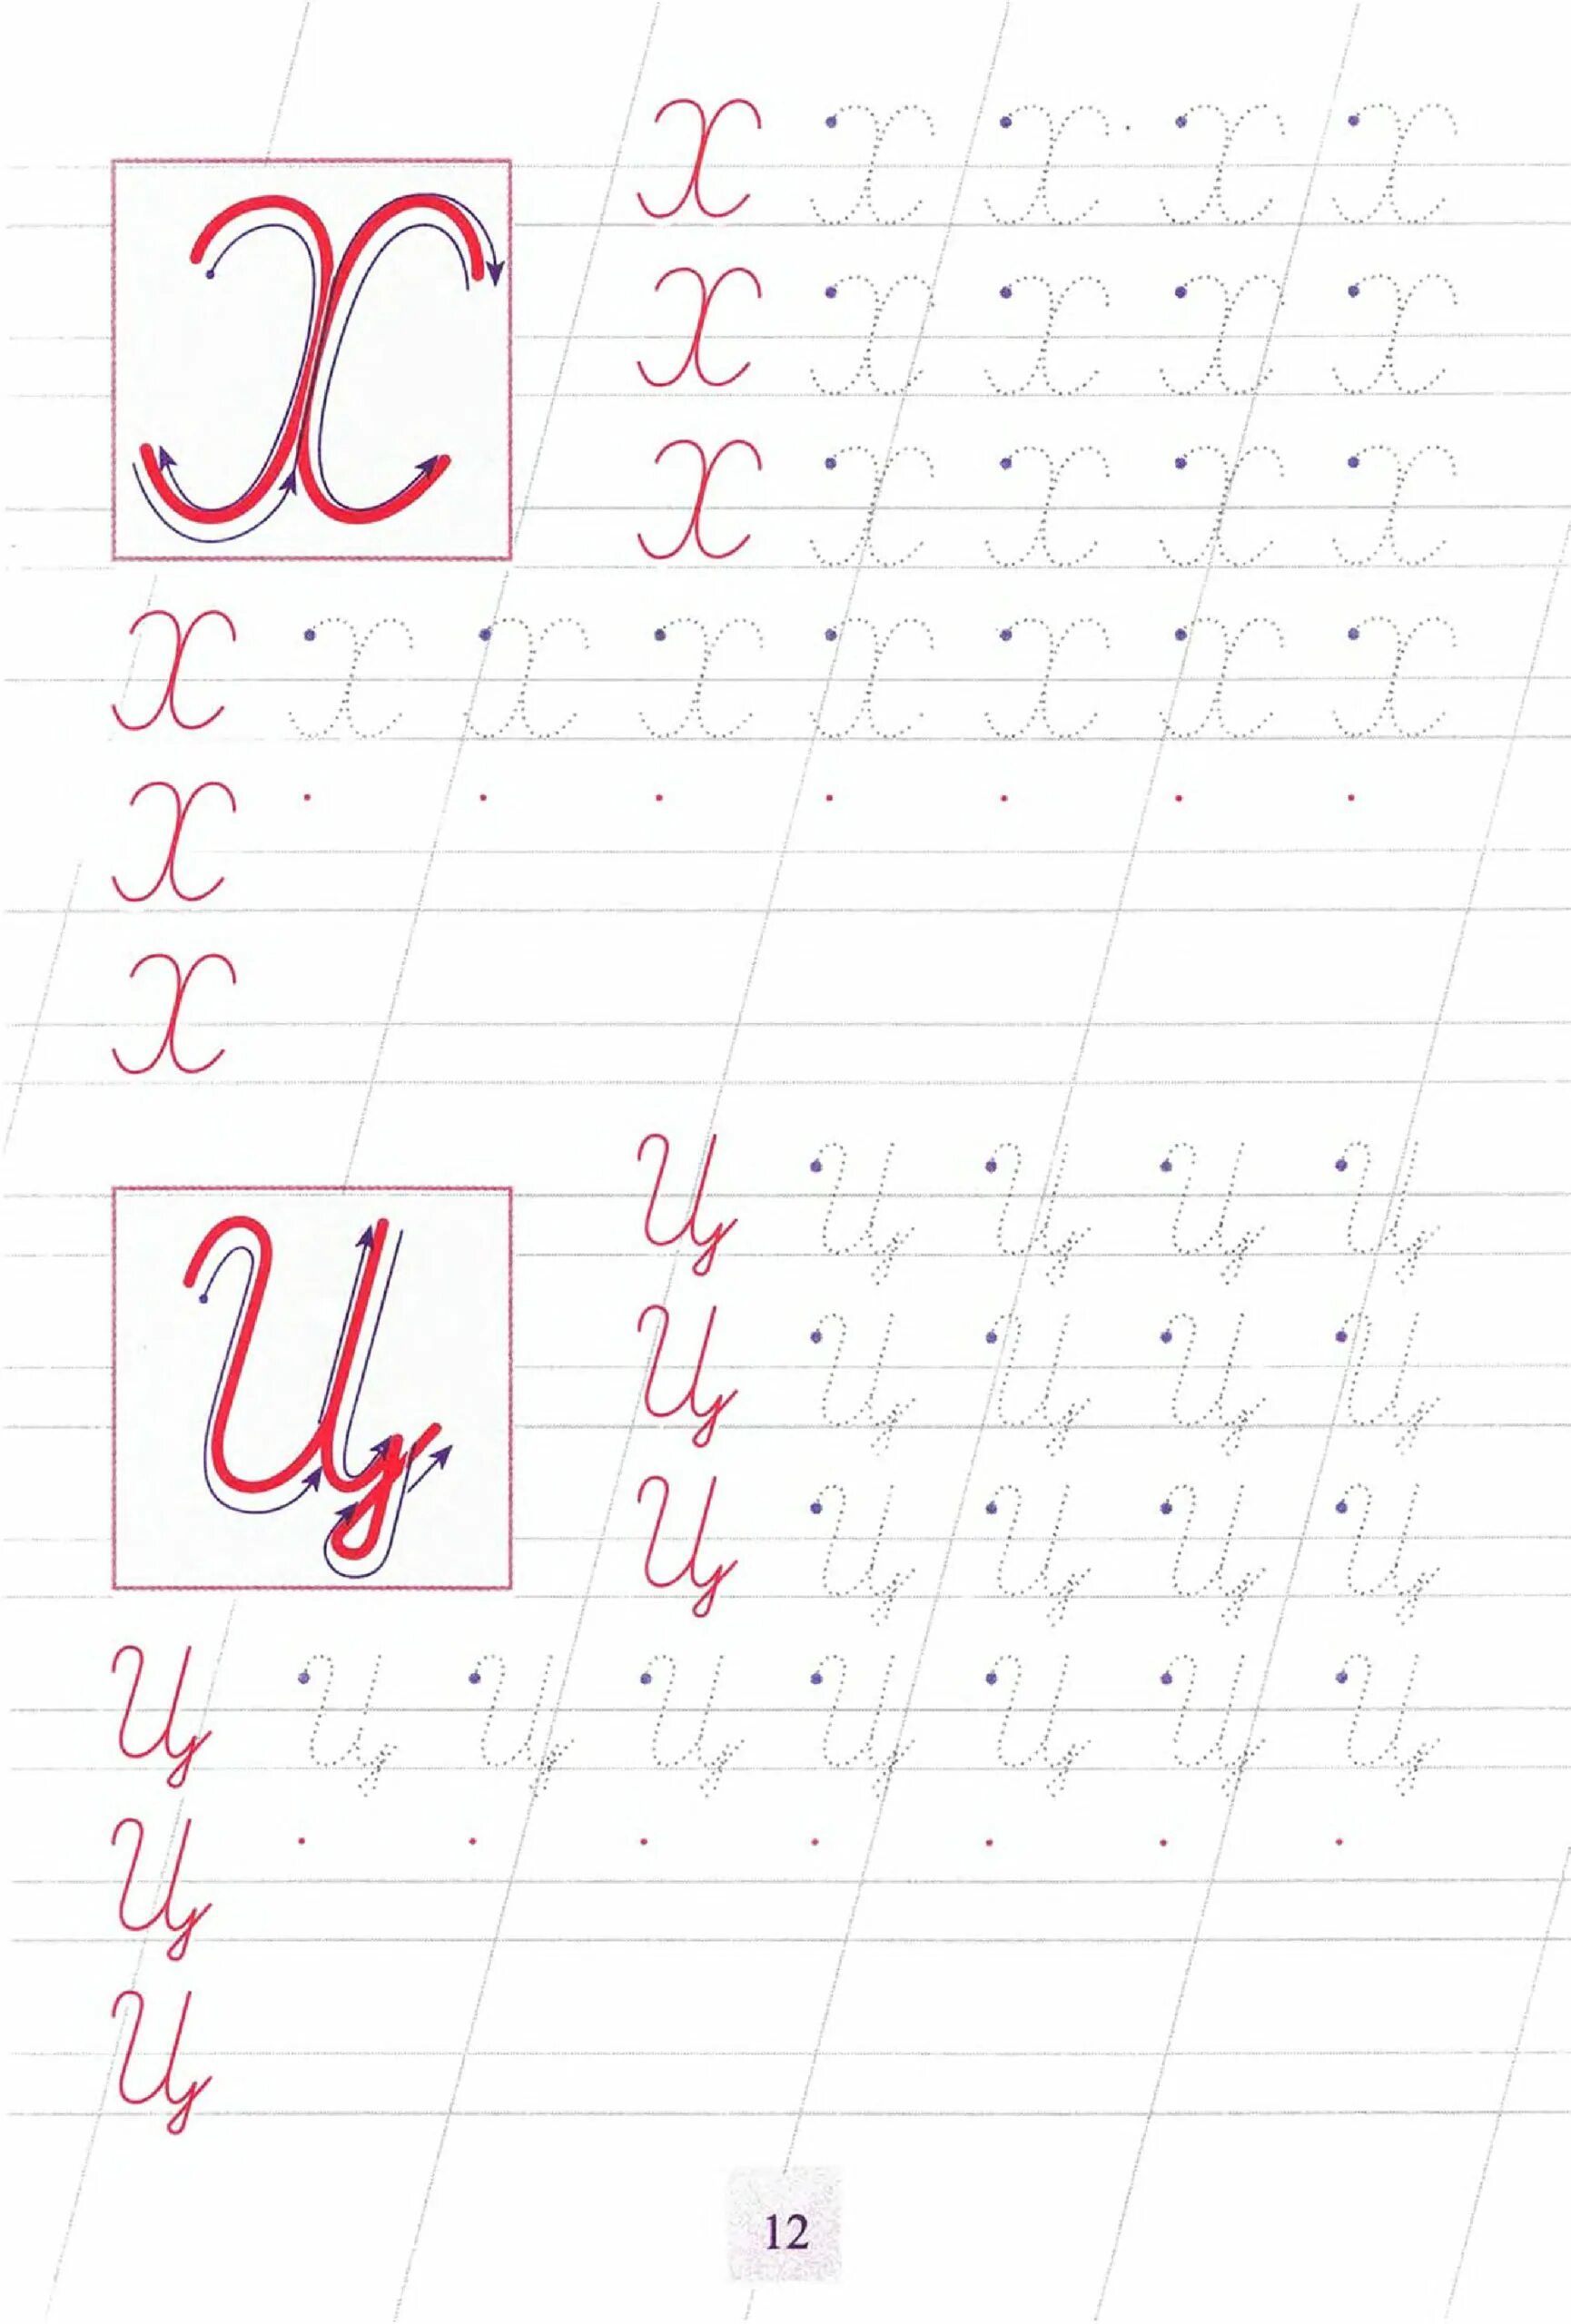 Х
Х Х Х Х Х
Х Х Х Х Х
Х Х Х Х Х
Х Х Х Х Х Х Х Х
Х
Х
Ц
Ц Ц Ц Ц Ц
Ц Ц Ц Ц Ц
Ц Ц Ц Ц Ц
Ц Ц Ц Ц Ц Ц Ц Ц
Ц
Ц
12